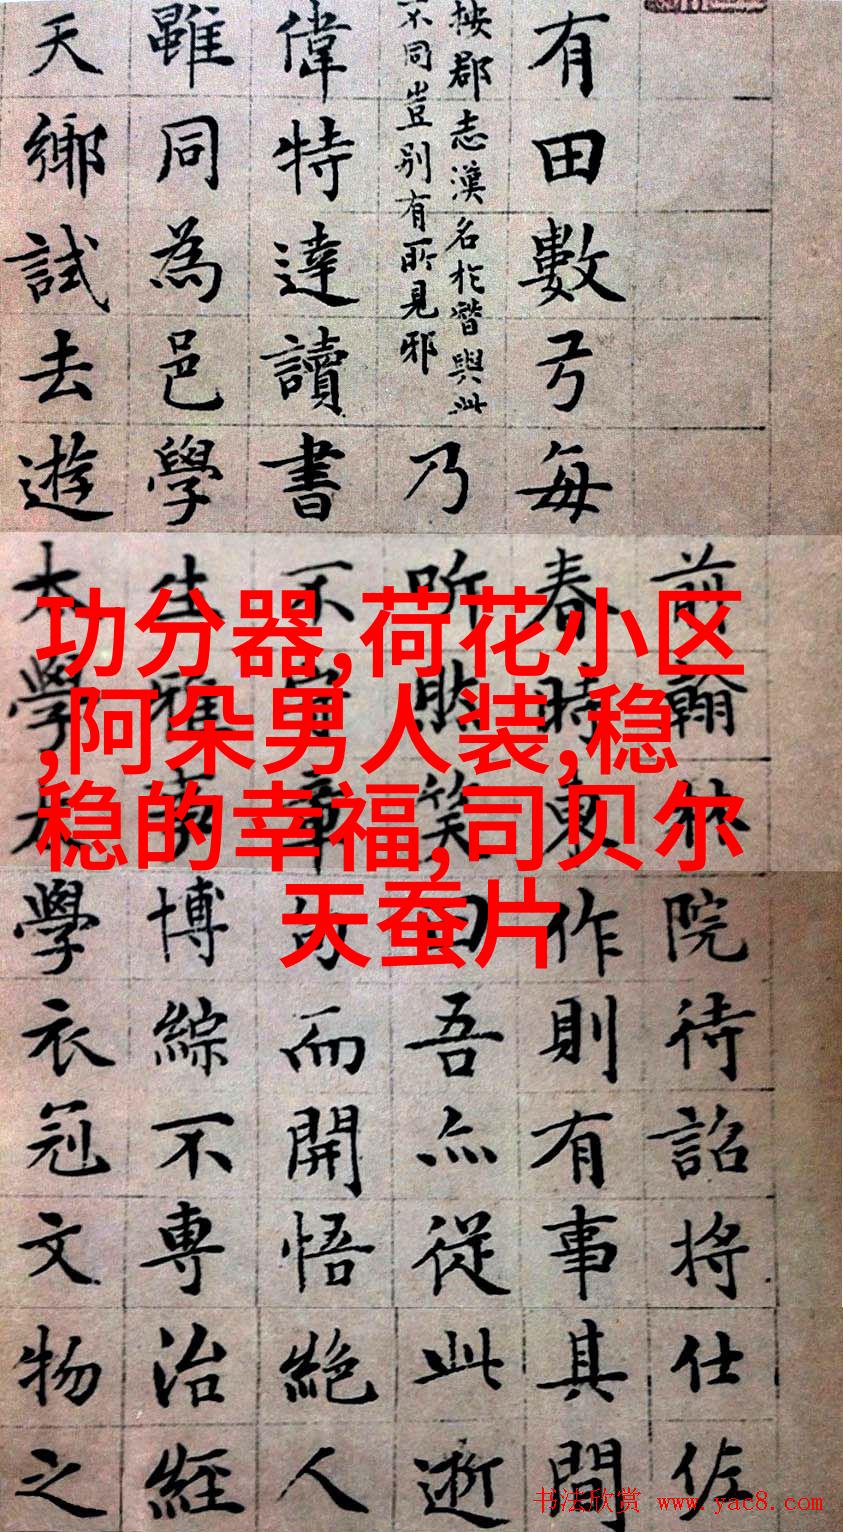 前翰林院待詔將仕佐
有田數弓每春時東作則有事其間
按郡志漢名於與此
不同豈别有所見邪
乃听然笑曰吾亦從此逝
偉特達讀書不章句而開悟絶人
雖同為邑學生雅博綜不專治經
天鄉試去遊太學太學衣冠文物之
功分器,荷花小区
,阿朵男人装,稳
稳的幸福,司贝尔
天蚕片
书法欣赏 www.yac8.com